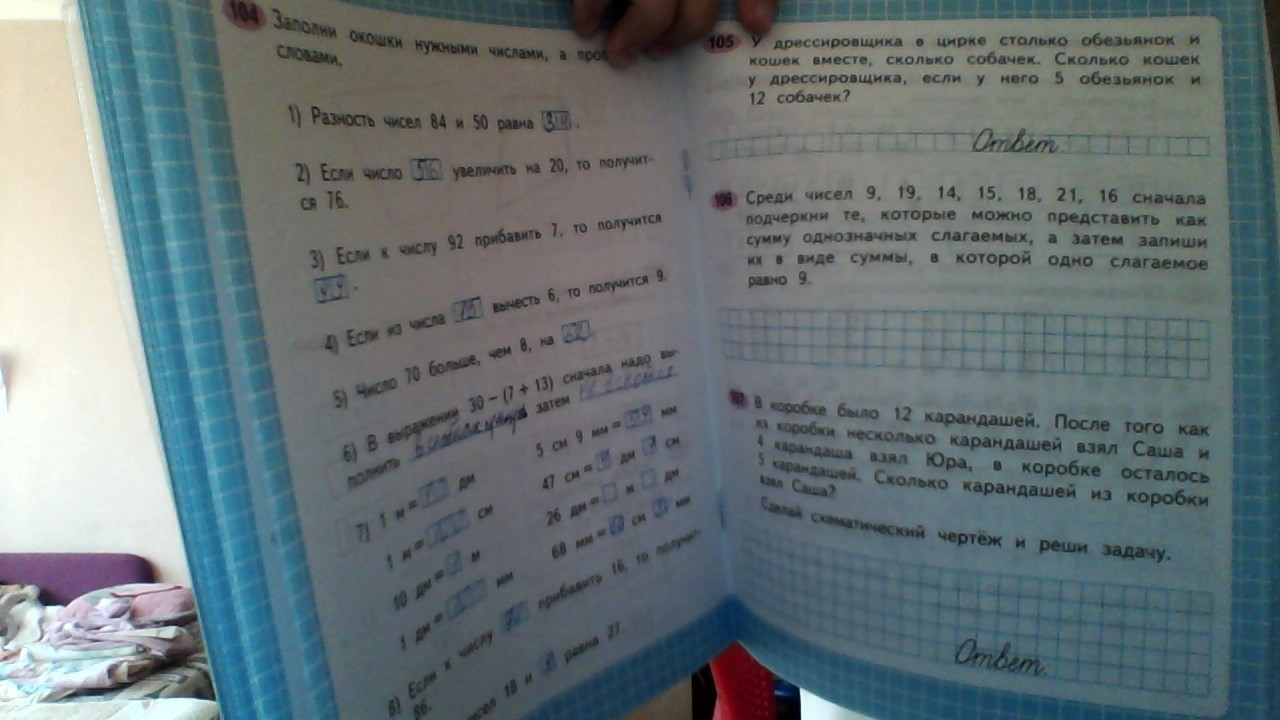 104 Заполни окошки нужными числами, а
словами.
1) Разность чисел 84 и 50 равна 34.
2) Если число 56 увеличить на 20, то получит-
ся 76.
3) Если к числу 92 прибавить 7, то получится
99.
4) Если из числа 15 вычесть 6, то получится 9.
5) Число 70 больше, чем 8, на 62.
6) В выражении 30 – (7 + 13) сначала надо вы-
полнить затем
7) 1 м = дм
5 см 9 мм = 59 мм
1 м = см
47 см = 4 дм 7 см
10 дм = м
26 дм = м дм
1 дм = мм
68 мм = см мм
8) Если к числу прибавить 16, то получит-
86.
18 и равна 27
105 У дрессировщика в цирке столько обезьянок и
кошек вместе, сколько собачек. Сколько кошек
у дрессировщика, если у него 5 обезьянок и
12 собачек?
Ответ.
106 Среди чисел 9, 19, 14, 15, 18, 21, 16 сначала
подчеркни те, которые можно представить как
сумму однозначных слагаемых, а затем запиши
их в виде суммы, в которой одно слагаемое
равно 9.
107 В коробке было 12 карандашей. После того как
из коробки несколько карандашей взял Саша и
4 карандаша взял Юра, в коробке осталось
5 карандашей. Сколько карандашей из коробки
взял Саша?
Сделай схематический чертёж и реши задачу.
Ответ.